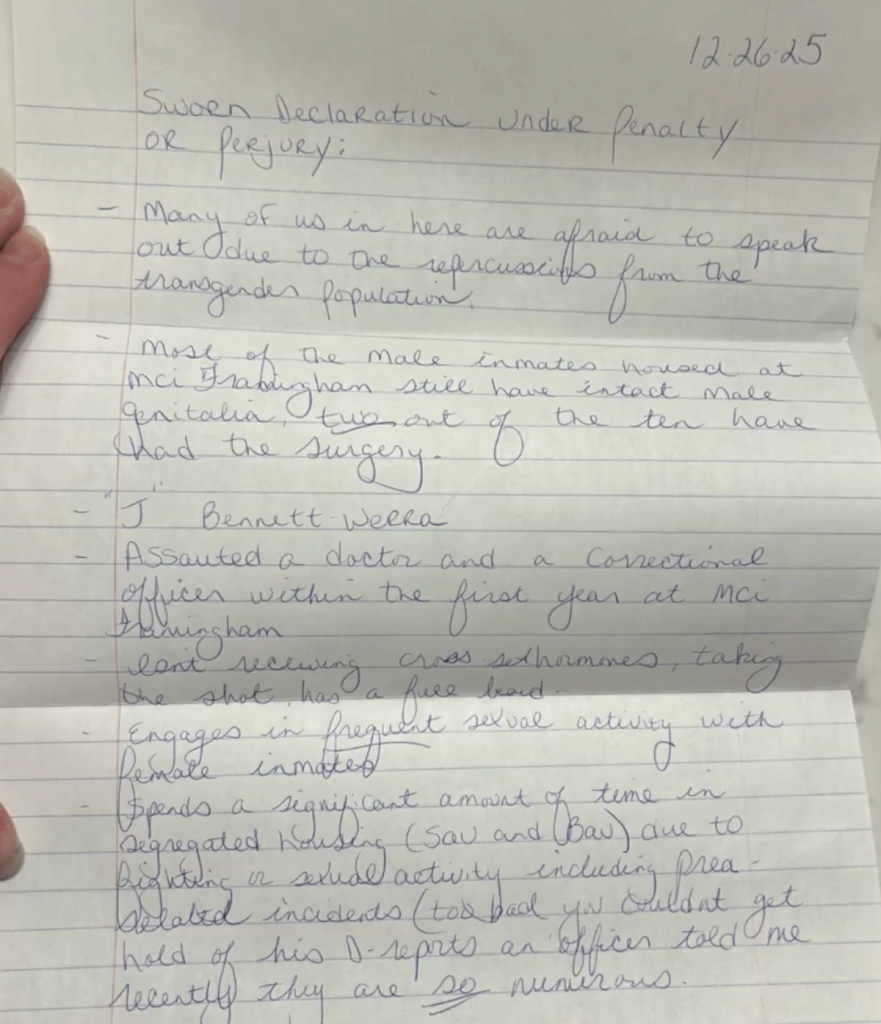 12.26.25
Sworn Declaration Under Penalty
OR Perjury:
- Many of us in here are afraid to speak
out due to the repercussions from the
transgender population.
- Most of the male inmates housed at
MCI Framingham still have intact male
genitalia, two out of the ten have
had the surgery.
- "J" Bennett-Werra
- Assauted a doctor and a Correctional
officer within the first year at MCI
Framingham
- isnt receiving cross sexhormones, taking
the shot, has a full beard.
- Engages in frequent sexual activity with
female inmates
- Spends a significant amount of time in
segregated housing (SAU and BAU) due to
fighting or sexual activity including Prea-
related incidents (too bad you couldnt get
hold of his D-reports an officer told me
recently they are so numerous.